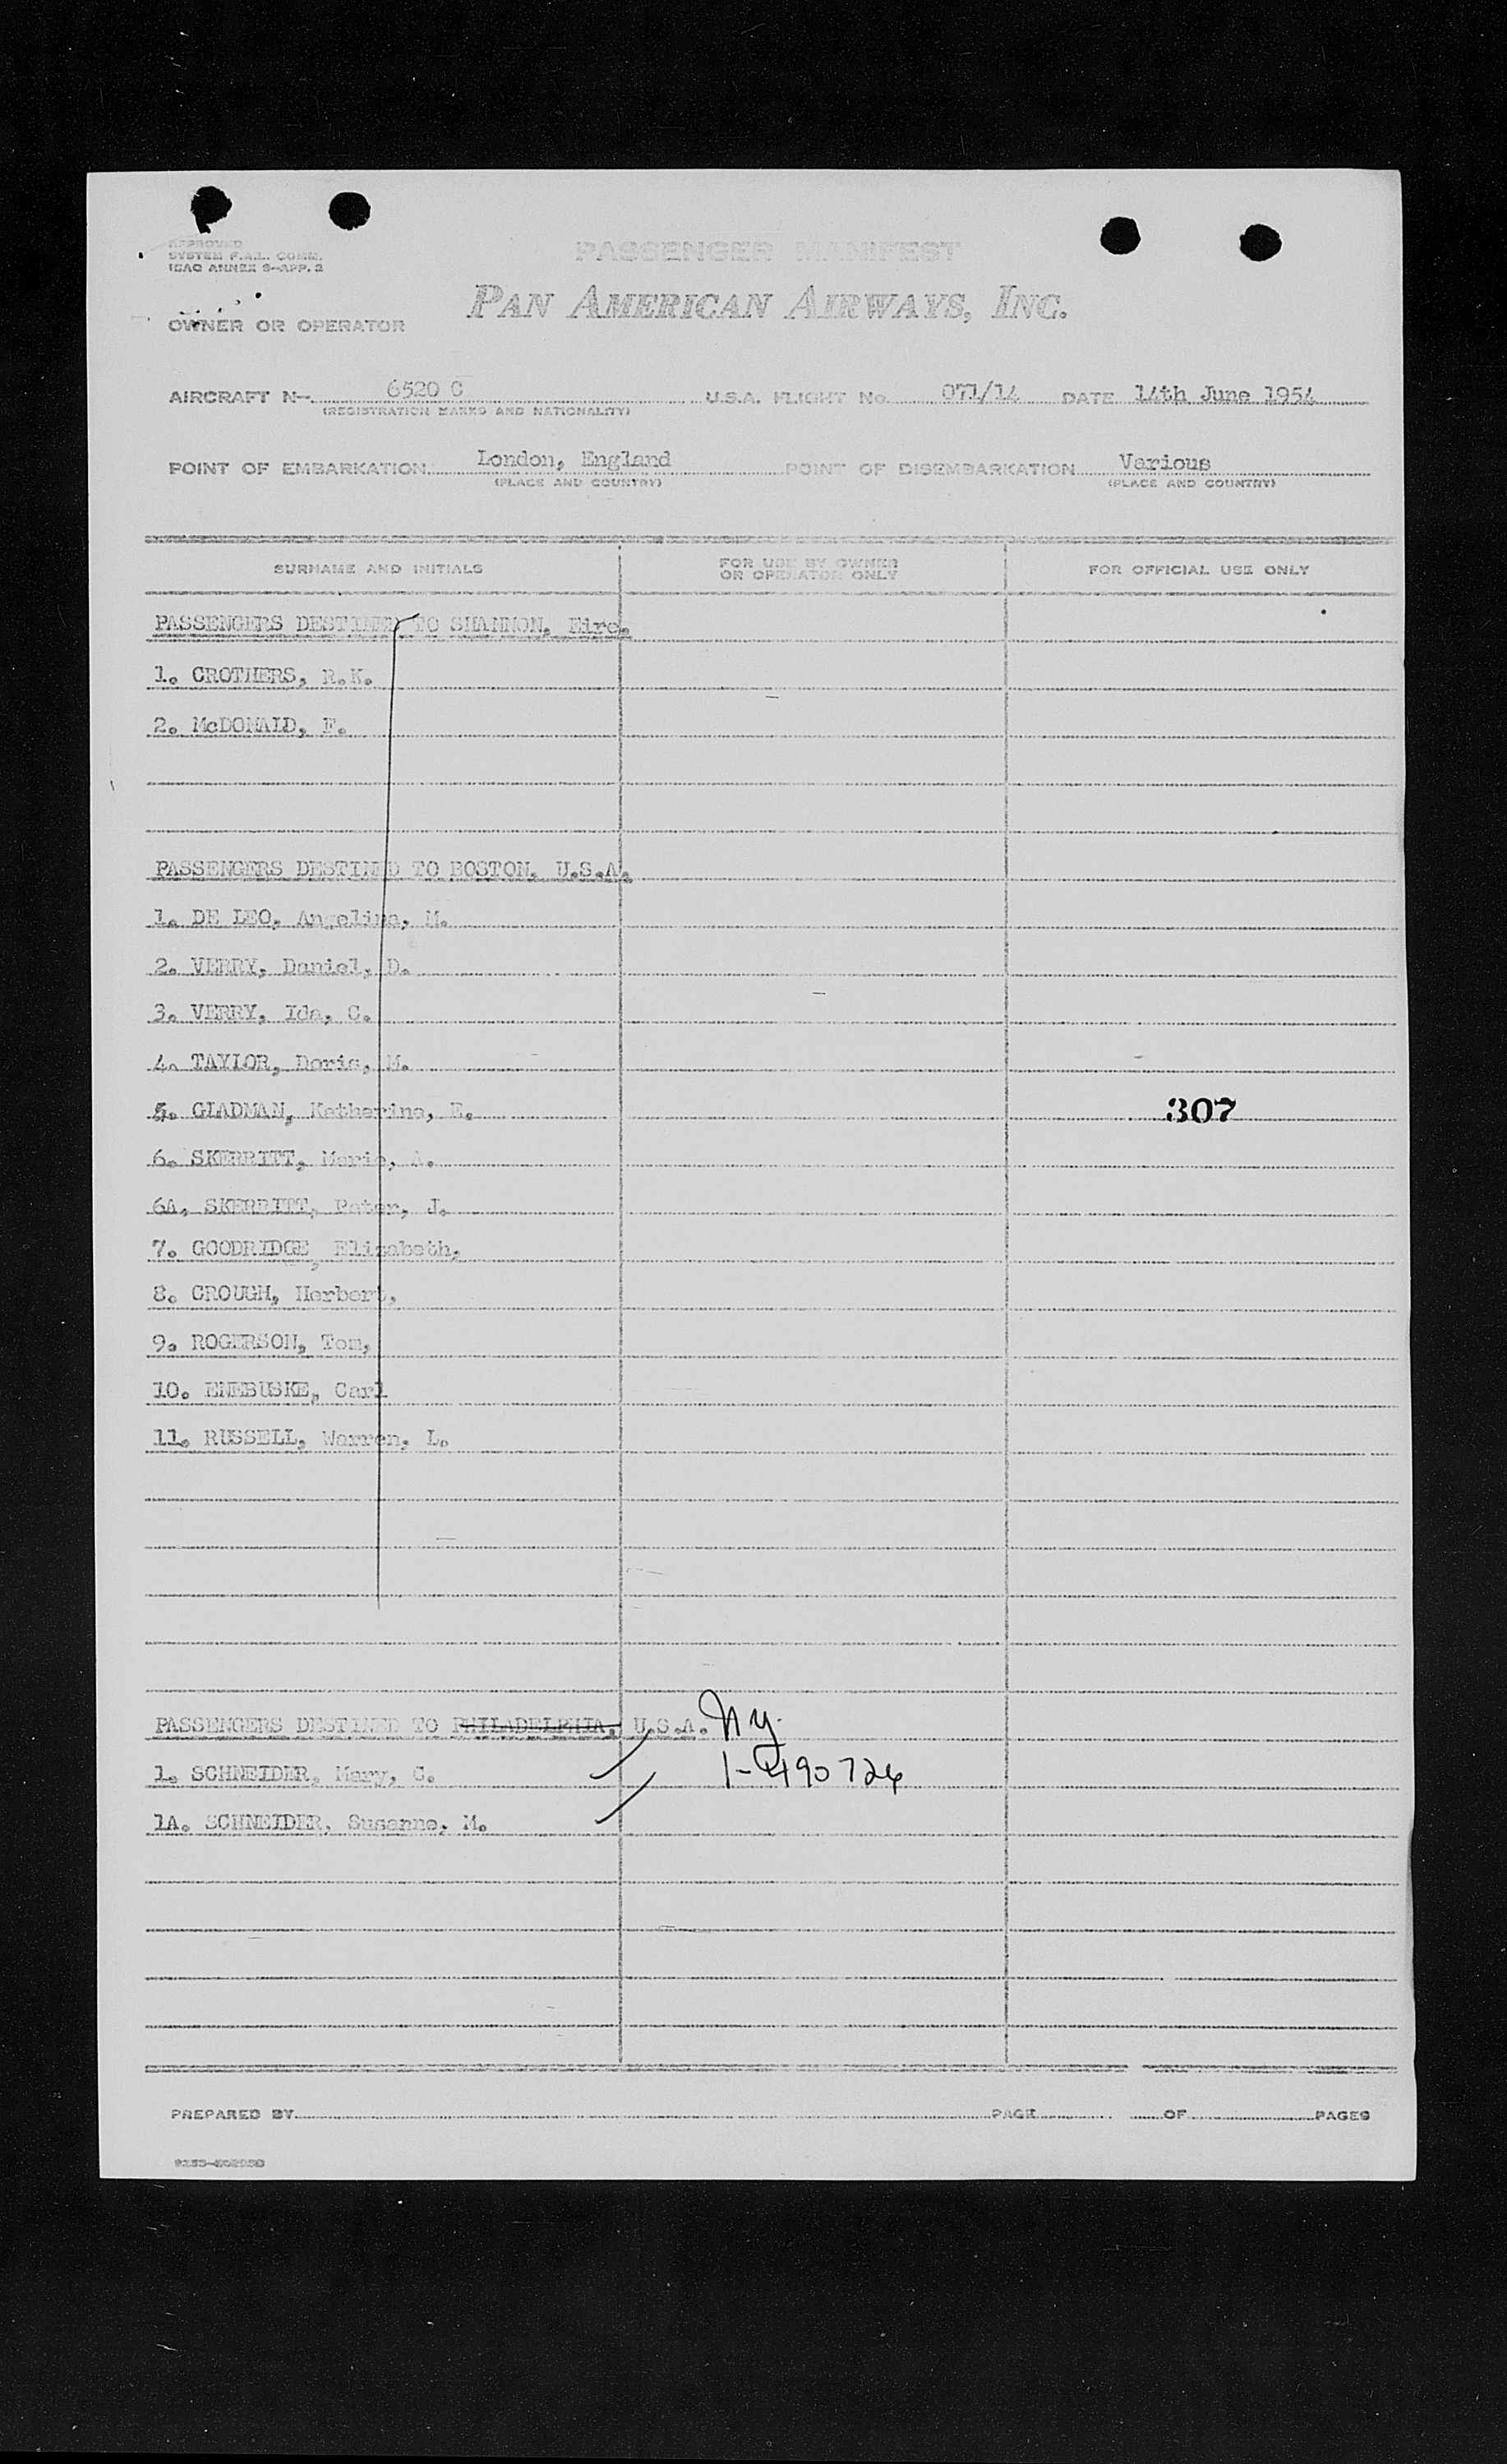 APPROVED
SYSTEM F.A.L. COMM.
ICAO ANNEX 9-APP. 2
PASSENGER MANIFEST
PAN AMERICAN AIRWAYS, INC.
OWNER OR OPERATOR
AIRCRAFT N- 6520 C U.S.A. FLIGHT No. 071/14 DATE 14th June 1954
(REGISTRATION MARKS AND NATIONALITY)
POINT OF EMBARKATION London, England POINT OF DISEMBARKATION Various
(PLACE AND COUNTRY) (PLACE AND COUNTRY)
SURNAME AND INITIALS FOR USE BY OWNER OR OPERATOR ONLY FOR OFFICIAL USE ONLY
PASSENGERS DESTINED TO SHANNON, Eire.
1. CROTHERS, R.K.
2. McDONALD, F.
PASSENGERS DESTINED TO BOSTON, U.S.A.
1. DE LEO, Angelina, M.
2. VERRY, Daniel, D.
3. VERRY, Ida, C.
4. TAYLOR, Doris, M.
5. GLADMAN, Katherine, E. 307
6. SKERRITT, Marie, A.
6A. SKERRITT, Peter, J.
7. GOODRIDGE, Elizabeth,
8. CROUGH, Herbert,
9. ROGERSON, Tom,
10. ENEBUSKE, Carl
11. RUSSELL, Warren, L.
PASSENGERS DESTINED TO PHILADELPHIA, U.S.A. Ny.
1. SCHNEIDER, Mary, C. 1-490726
1A. SCHNEIDER, Susanne, M.
PREPARED BY PAGE OF PAGES